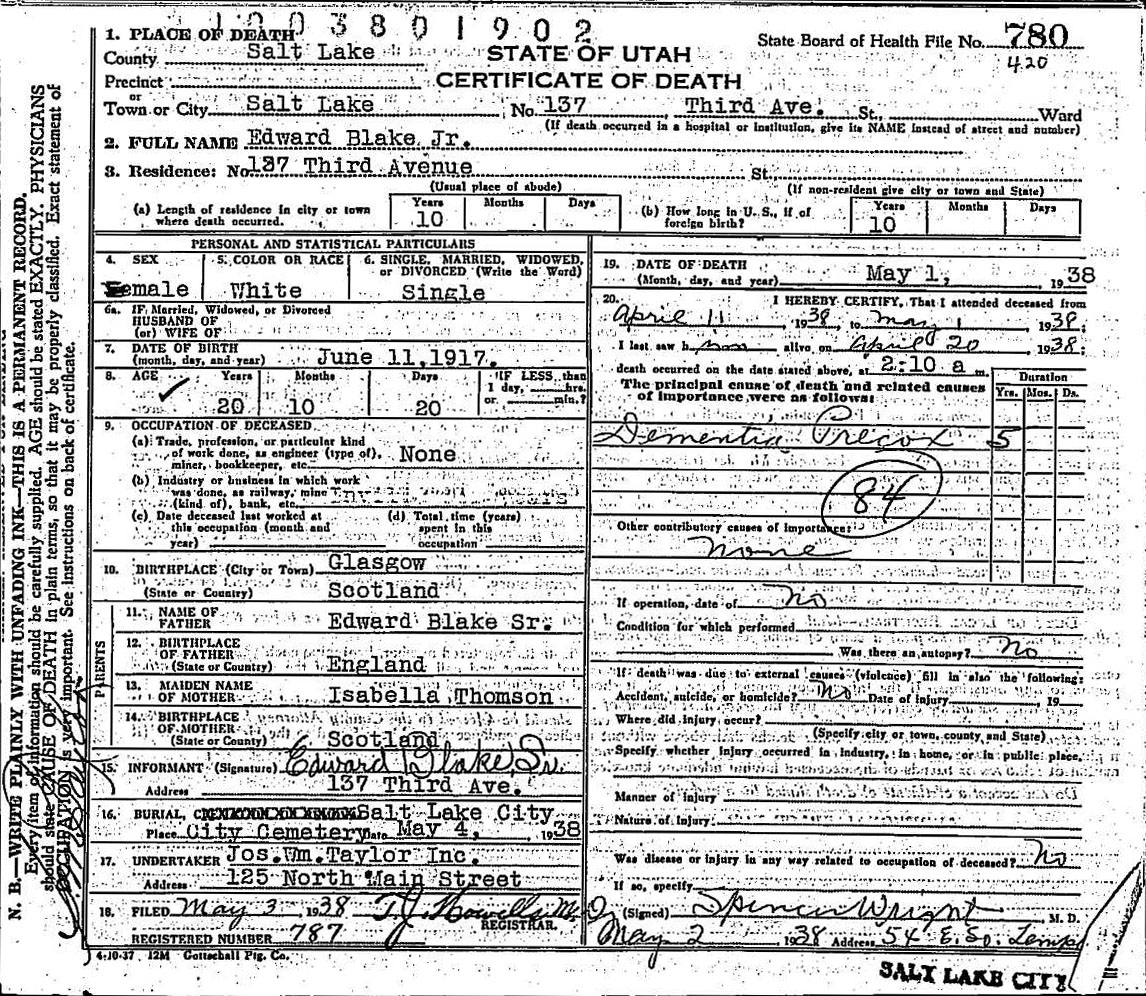 1003801902
1. PLACE OF DEATH
County Salt Lake
STATE OF UTAH
State Board of Health File No. 780
420
Precinct
CERTIFICATE OF DEATH
or
Town or City Salt Lake No. 137 Third Ave. St. Ward
(If death occurred in a hospital or institution, give its NAME instead of street and number)
2. FULL NAME Edward Blake Jr.
3. Residence: No. 137 Third Avenue St.
(Usual place of abode) (If non-resident give city or town and State)
(a) Length of residence in city or town where death occurred. Years 10 Months Days
(b) How long in U. S., if of foreign birth? Years 10 Months Days
PERSONAL AND STATISTICAL PARTICULARS
4. SEX male
5. COLOR OR RACE White
6. SINGLE, MARRIED, WIDOWED, or DIVORCED (Write the Word) Single
6a. If Married, Widowed, or Divorced
HUSBAND OF
(or) WIFE OF
7. DATE OF BIRTH
(month, day, and year) June 11, 1917.
8. AGE Years 20 Months 10 Days 20 IF LESS than 1 day, hrs. or min.?
9. OCCUPATION OF DECEASED
(a) Trade, profession, or particular kind
of work done, as engineer (type of), None
miner, bookkeeper, etc.
(b) Industry or business in which work
was done, as railway, mine
(kind of), bank, etc.
(c) Date deceased last worked at this occupation (month and year)
(d) Total time (years) spent in this occupation
10. BIRTHPLACE (City or Town) Glasgow
(State or Country) Scotland
PARENTS
11. NAME OF FATHER Edward Blake Sr.
12. BIRTHPLACE OF FATHER
(State or Country) England
13. MAIDEN NAME OF MOTHER Isabella Thomson
14. BIRTHPLACE OF MOTHER
(State or Country) Scotland
15. INFORMANT (Signature) Edward Blake, Sr.
Address 137 Third Ave.
16. BURIAL, Salt Lake City
Place City Cemetery Date May 4, 1938
17. UNDERTAKER Jos. Wm. Taylor Inc.
Address 125 North Main Street
18. FILED May 3 1938 T. J. Howells M. D.
REGISTRAR.
REGISTERED NUMBER 787
4-10-37 12M Gottschall Ptg. Co.
19. DATE OF DEATH
(Month, day, and year) May 1, 1938
20. I HEREBY CERTIFY, That I attended deceased from
April 11 1938, to May 1 1938.
I last saw him alive on April 20 1938:
death occurred on the date stated above, at 2:10 a m.
The principal cause of death and related causes
of importance were as follows:
Duration
Yrs. Mos. Ds.
Dementia Precox 5
84
Other contributory causes of importance:
none
If operation, date of no
Condition for which performed
Was there an autopsy? No
If death was due to external causes (violence) fill in also the following:
Accident, suicide, or homicide? No Date of injury 19
Where did injury occur?
(Specify city or town, county and State)
Specify whether injury occurred in industry, in home, or in public place,
Manner of injury
Nature of injury
Was disease or injury in any way related to occupation of deceased? No
If so, specify
(Signed) Spencer Wright M. D.
May 2 1938 Address 54 E. So. Temp
SALT LAKE CITY
N. B.—WRITE PLAINLY WITH UNFADING INK—THIS IS A PERMANENT RECORD.
Every item of information should be carefully supplied. AGE should be stated EXACTLY. PHYSICIANS
should state CAUSE OF DEATH in plain terms, so that it may be properly classified. Exact statement of
OCCUPATION is very important. See instructions on back of certificate.